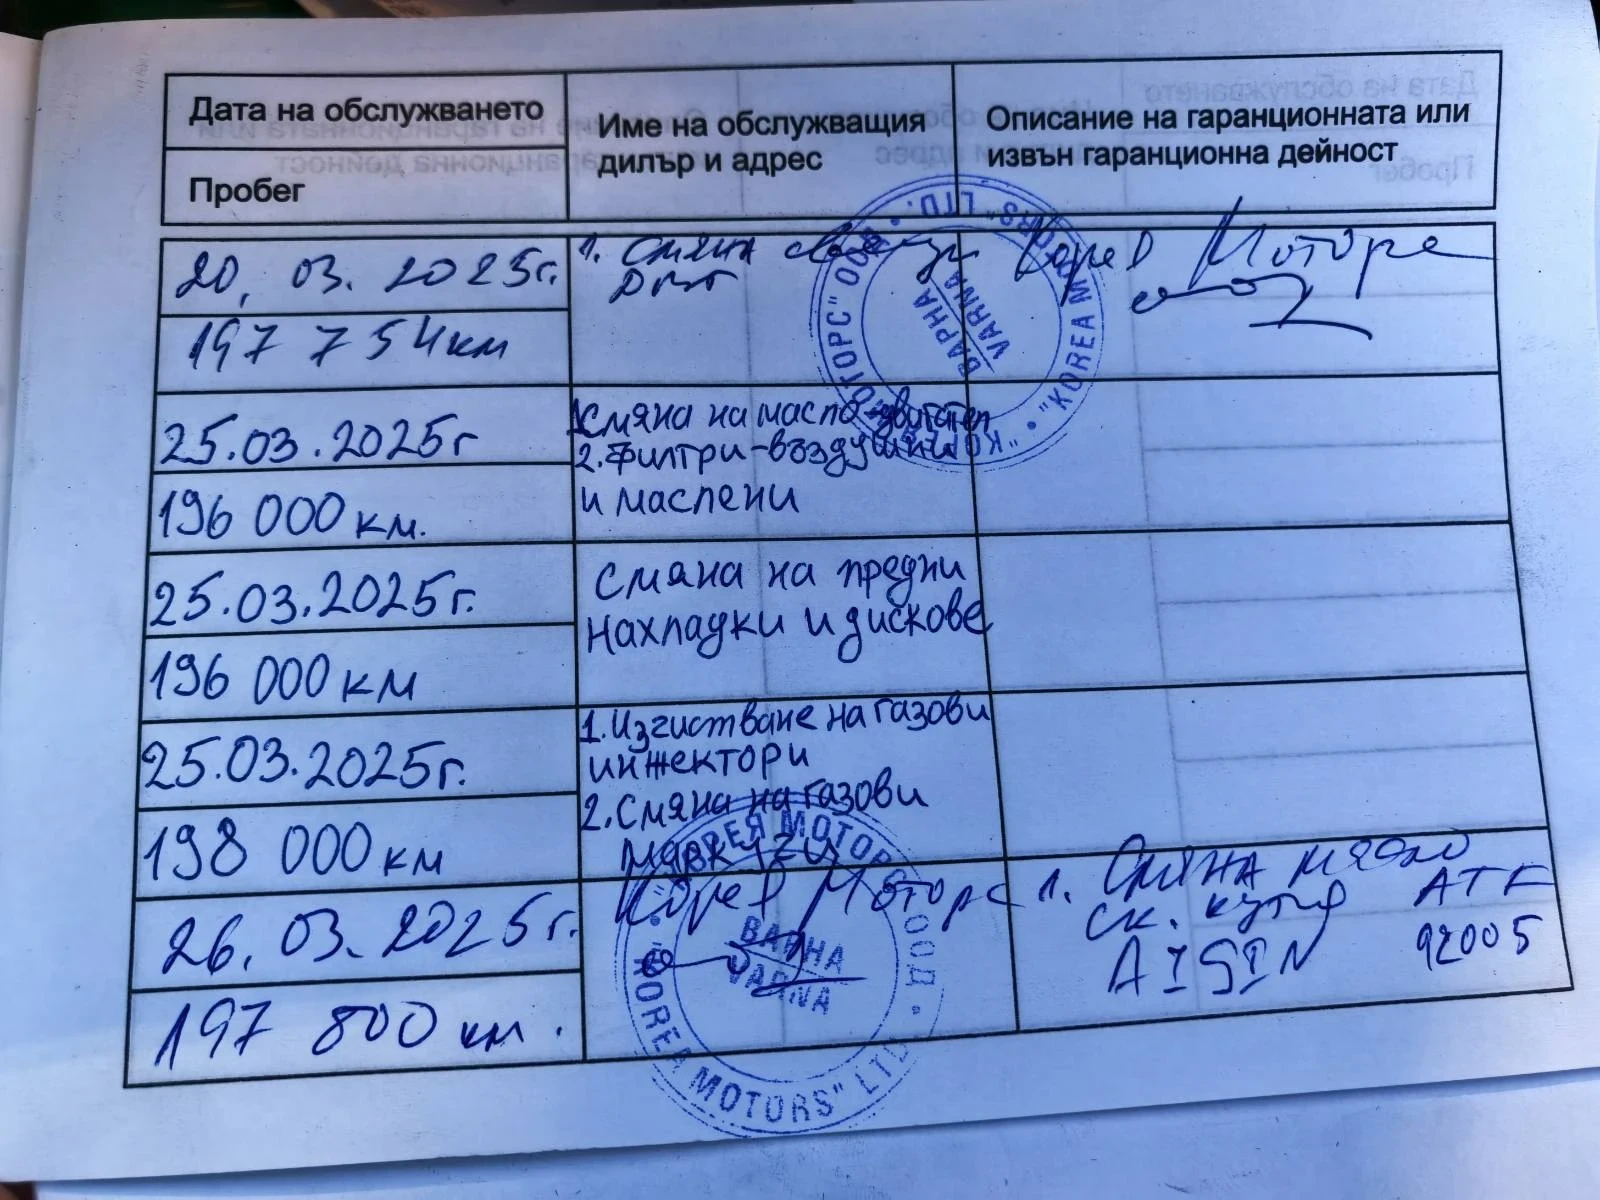 Дата на обслужването
Пробег
Име на обслужващия
дилър и адрес
Описание на гаранционната или
извън гаранционна дейност
20. 03. 2025г.
197 754км
1. смяна свещи
Корея Моторс
"КОРЕЯ МОТОРС" ООД • "KOREA MOTORS" LTD. •
ВАРНА
VARNA
25.03.2025г
196 000 км.
1.Смяна на масло-двигател
2.Филтри-въздушни
и маслени
25.03.2025г.
196 000 км
Смяна на предни
накладки и дискове
25.03.2025г.
198 000 км
1.Изчистване на газови
инжектори
2.Смяна на газови
26. 03. 2025г.
197 800 км.
Корея Моторс
"КОРЕЯ МОТОРС" ООД • "KOREA MOTORS" LTD
ВАРНА
VARNA
1. Смяна масло
ск. кутия ATF
AISIN 92005